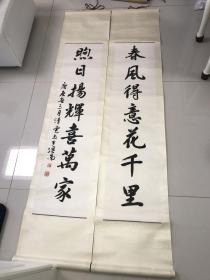 春風得意花千里
煦日揚輝喜萬家